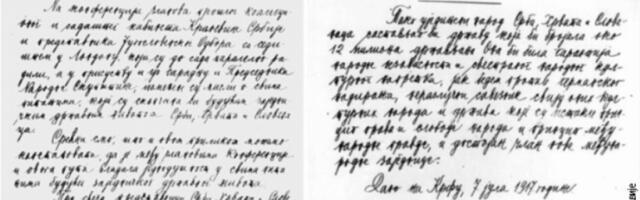 На конференцији чланова прошлог коалиционог
и садашњег кабинета Краљевине Србије
и представника Југословенског Одбора са седиштем
у Лондону, који су до сада паралелно радили,
а у присуству и уз сарадњу и Председника
Народне Скупштине, измењене су мисли о свима
питањима, која су скопчана са будућим заједничким
државним животом Срба, Хрвата и Словенаца.
Срећни смо, што и овом приликом можемо
констатовати, да је међу члановима Конференције
у свима питањима
будућег заједничког државног живота.
Тако уједињени народ Срба, Хрвата и Словенаца
састављао би државу која би бројала око
12 милиона држављана. Она би била гаранција
народне независности и свестраног народног културног
напретка, јак бедем против германског
надирања, нераздвојни савезник свију оних културних
народа и држава који су истакли принцип
права и слободе народа и принцип међународне
правде, и достојан члан нове међународне
заједнице.
Дано на Крфу, 7 јула 1917 године